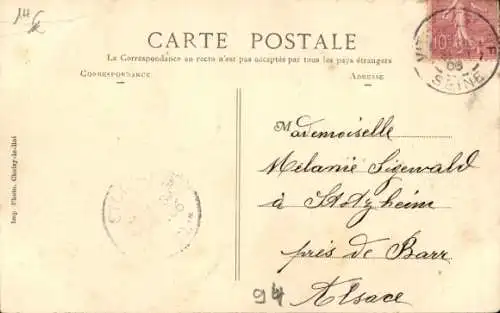 CARTE POSTALE
La Correspondance au recto n'est pas acceptée par tous les pays étrangers
CORRESPONDANCE
ADRESSE
Mademoiselle
Mélanie Sigewald
à Stotzheim
près de Barr
Alsace
94
Imp. Photo. Choisy-le-Roi
SEINE
08
10